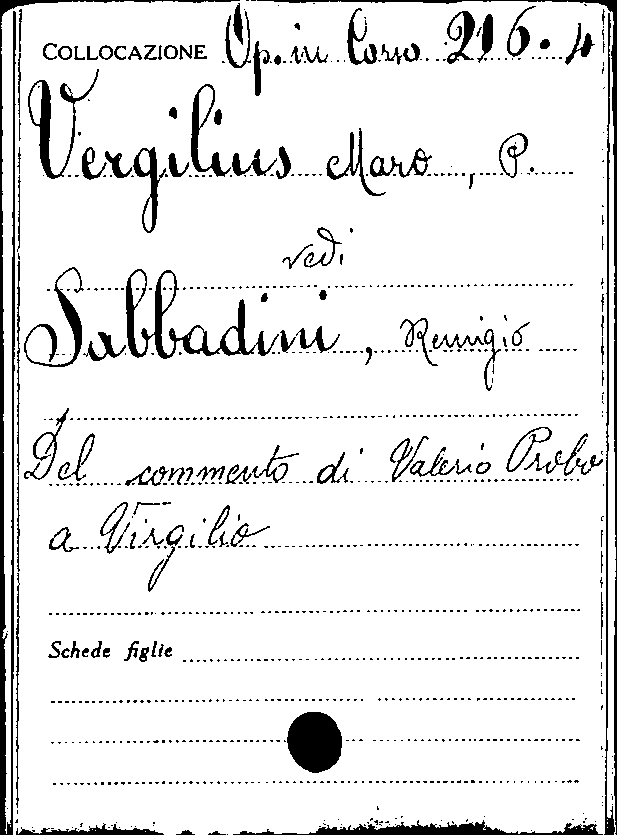 COLLOCAZIONE Op. in Corso 216.4
Vergilius Maro, P.
vedi
Sabbadini, Remigio
Del commento di Valerio Probo
a Virgilio
Schede figlie